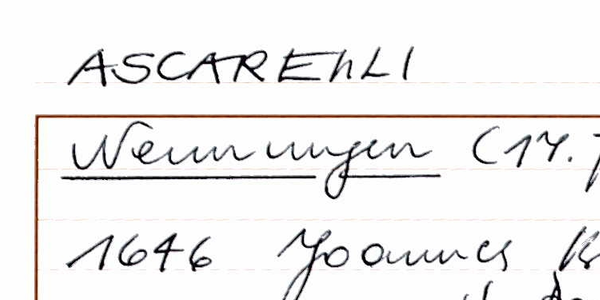 ASCAREhLI
Wennungen (17.
1646 Joannes K